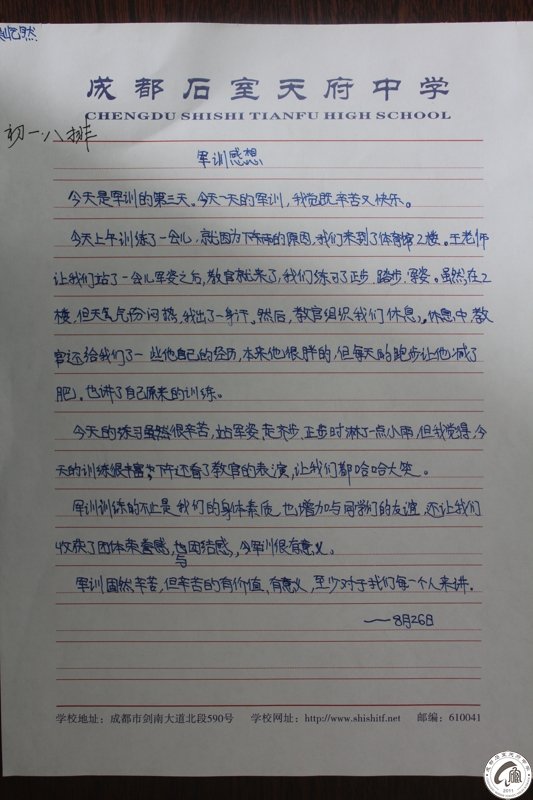 成都石室天府中学
CHENGDU SHISHI TIANFU HIGH SCHOOL
初一八排
军训感想
今天是军训的第三天。今天一天的军训，我觉既辛苦又快乐。
今天上午训练了一会儿，就因为下雨的原因，我们来到了体育馆2楼。王老师
让我们站了一会儿军姿之后，教官就来了，我们练习了正步、踏步、军姿。虽然在2
楼，但天气十分闷热，我出了一身汗。然后，教官组织我们休息。休息中，教
官还给我们了一些他自己的经历，本来他很胖的，但每天的跑步让他减了
肥，也讲了自己原来的训练。
今天的练习虽然很辛苦，站军姿走齐步正步时淋了一点小雨，但我觉得，今
天的训练很丰富，下午还看了教官的表演，让我们都哈哈大笑。
军训训练的不止是我们的身体素质，也增加与同学们的友谊，还让我们
收获了团体荣誉感，与团结感，今军训很有意义。
军训固然辛苦，但辛苦的有价值，有意义，至少对于我们每一个人来讲。
——8月26日
学校地址：成都市剑南大道北段590号 学校网址：http://www.shishitf.net 邮编：610041
2011